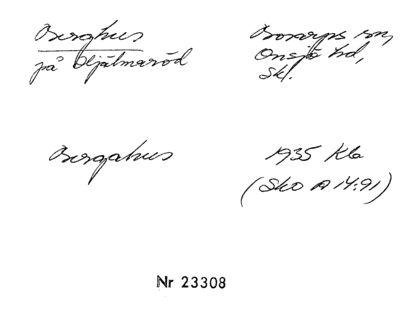 Berghus
på Hjälmaröd
Bosarps sn,
Onsjö hd,
Skl.
Bergahus
1935 Kla
(Sko A 14:91)
Nr 23308